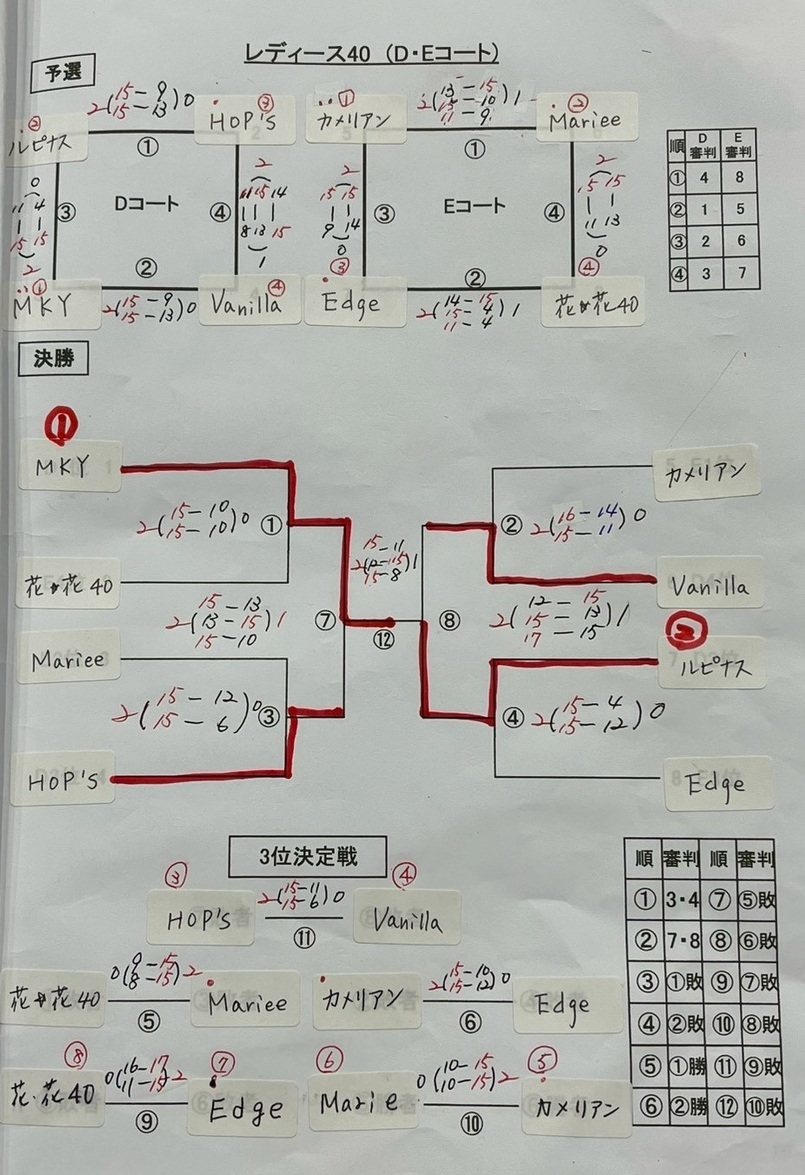 レディース40（D・Eコート）
予選
ルピナス ②
2(15-9 15-13)0
①
HOP's ③
カメリアン ①
2(13-15 15-10 11-9)1
①
Mariee ②
順 D審判 E審判
① 4 8
② 1 5
③ 2 6
④ 3 7
0
11 4
15 15
2
③
Dコート
④
2
11 15 14
8 13 15
1
2
15 15
9 14
0
③
Eコート
④
2
15 15
11 13
0
MKY ①
②
2(15-9 15-13)0
Vanilla ④
Edge ③
②
2(14-15 15-4 11-4)1
花☆花40 ④
決勝
①
MKY
カメリアン
2(15-10 15-10)0
①
15-11
2(12-15)1
15-8
②
2(16-14 15-11)0
花☆花40
Vanilla
2(15-13 13-15 15-10)1
⑦
⑫
⑧
2(12-15 15-13 17-15)1
②
Mariee
ルピナス
2(15-12 15-6)0
③
④
2(15-4 15-12)0
HOP's
Edge
3位決定戦
③
HOP's
2(15-11 15-6)0
⑪
④
Vanilla
花☆花40
0(9-15 8-15)2
⑤
Mariee
カメリアン
2(15-10 15-12)0
⑥
Edge
⑧
花・花40
0(16-17 11-15)2
⑨
⑦
Edge
⑥
Marie
0(10-15 10-15)2
⑩
⑤
カメリアン
順 審判 順 審判
① 3・4 ⑦ ⑤敗
② 7・8 ⑧ ⑥敗
③ ①敗 ⑨ ⑦敗
④ ②敗 ⑩ ⑧敗
⑤ ①勝 ⑪ ⑨敗
⑥ ②勝 ⑫ ⑩敗